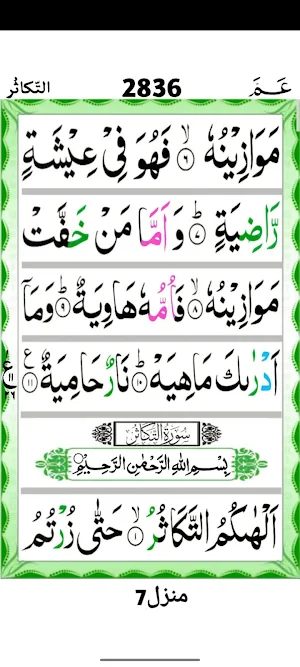 عَمَّ 2836 التّكاثُر
مَوَازِيْنُهٗ ۙ﴿٦﴾ فَهُوَ فِيْ عِيْشَةٍ
رَّاضِيَةٍ ؕ﴿٧﴾ وَ اَمَّا مَنْ خَفَّتْ
مَوَازِيْنُهٗ ۙ﴿٨﴾ فَاُمُّهٗ هَاوِيَةٌ ؕ﴿٩﴾ وَمَاۤ
اَدْرٰىكَ مَاهِيَهْ ؕ﴿١٠﴾ نَارٌ حَامِيَةٌ ﴿١١﴾ ع
سُوْرَةُ التَّكَاثُرِ
بِسْمِ اللّٰهِ الرَّحْمٰنِ الرَّحِيْمِ
اَلْهٰىكُمُ التَّكَاثُرُ ۙ﴿١﴾ حَتّٰى زُرْتُمُ
منزل7